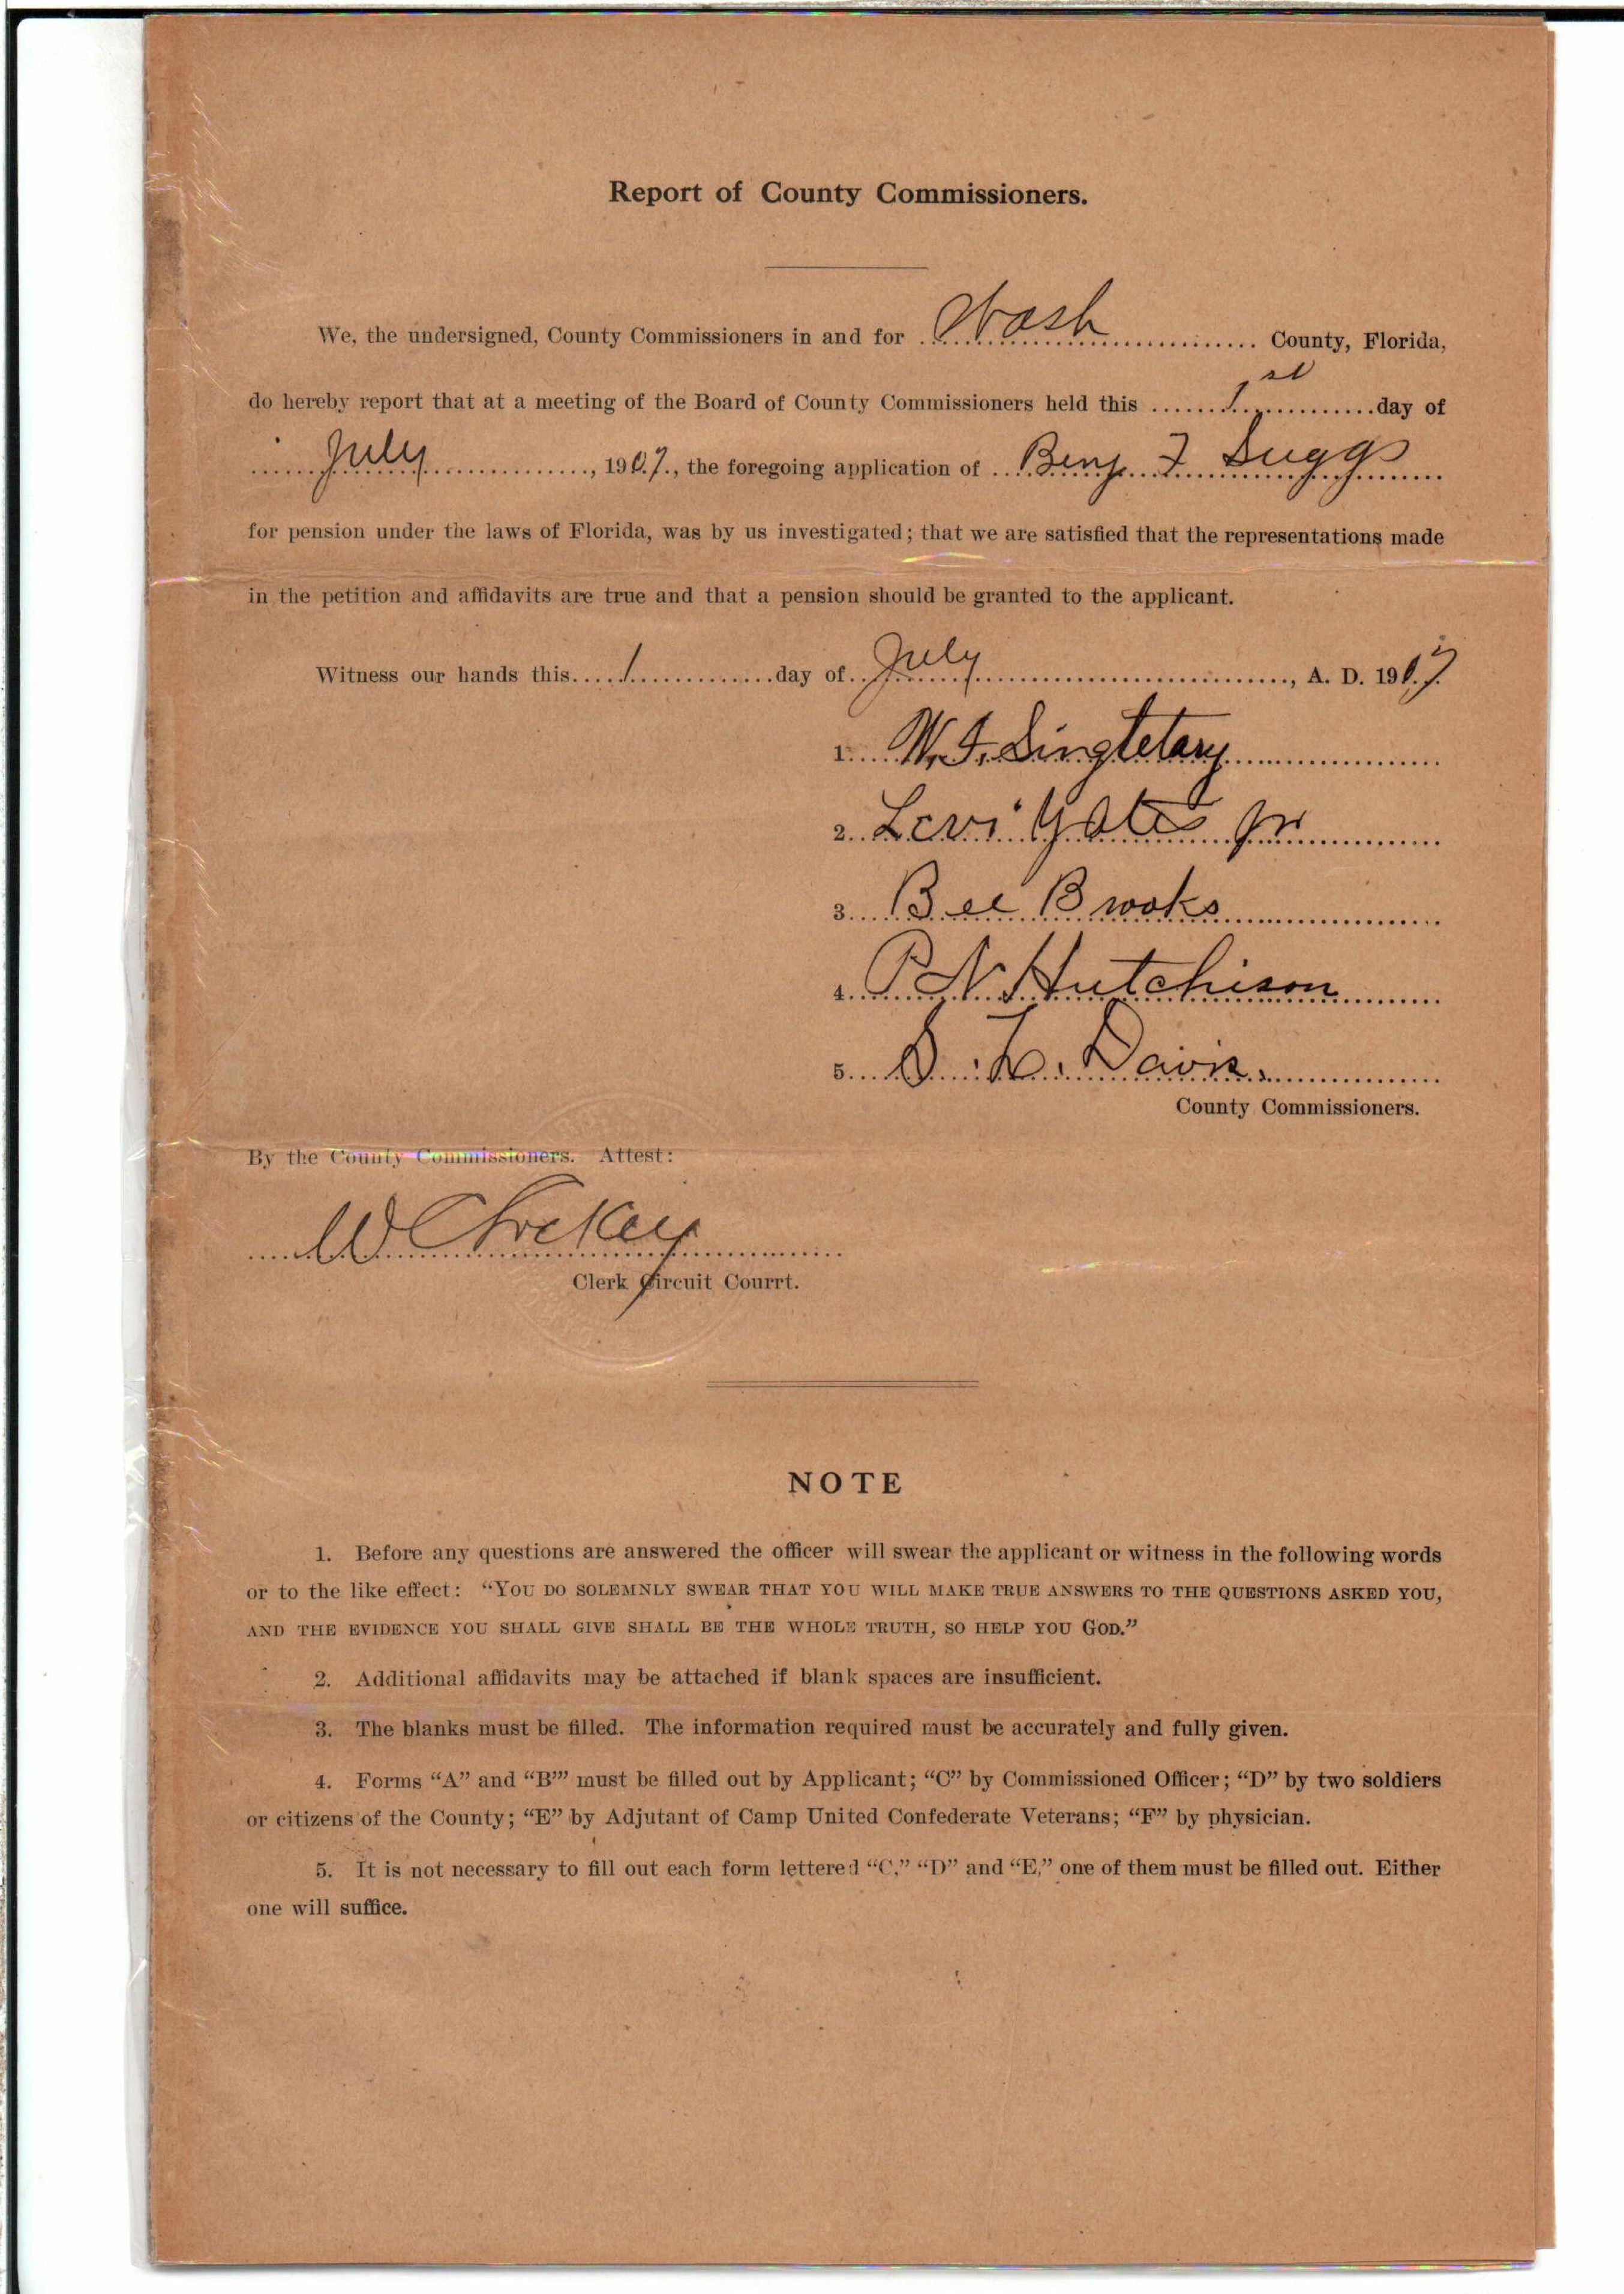 Report of County Commissioners.
We, the undersigned, County Commissioners in and for Wash County, Florida,
do hereby report that at a meeting of the Board of County Commissioners held this 1st day of
July, 1907, the foregoing application of Benj. F Suggs
for pension under the laws of Florida, was by us investigated; that we are satisfied that the representations made
in the petition and affidavits are true and that a pension should be granted to the applicant.
Witness our hands this 1 day of July, A. D. 1907.
1. W. F. Singletary
2. Levi Yates Jr
3. Bee Brooks
4. P N Hutchison
5. D. L. Davis.
County Commissioners.
By the County Commissioners. Attest:
W C Lockey
Clerk Circuit Courrt.
NOTE
1. Before any questions are answered the officer will swear the applicant or witness in the following words
or to the like effect: “YOU DO SOLEMNLY SWEAR THAT YOU WILL MAKE TRUE ANSWERS TO THE QUESTIONS ASKED YOU,
AND THE EVIDENCE YOU SHALL GIVE SHALL BE THE WHOLE TRUTH, SO HELP YOU GOD.”
2. Additional affidavits may be attached if blank spaces are insufficient.
3. The blanks must be filled. The information required must be accurately and fully given.
4. Forms “A” and “B’” must be filled out by Applicant; “C” by Commissioned Officer; “D” by two soldiers
or citizens of the County; “E” by Adjutant of Camp United Confederate Veterans; “F” by physician.
5. It is not necessary to fill out each form lettered “C,” “D” and “E,” one of them must be filled out. Either
one will suffice.